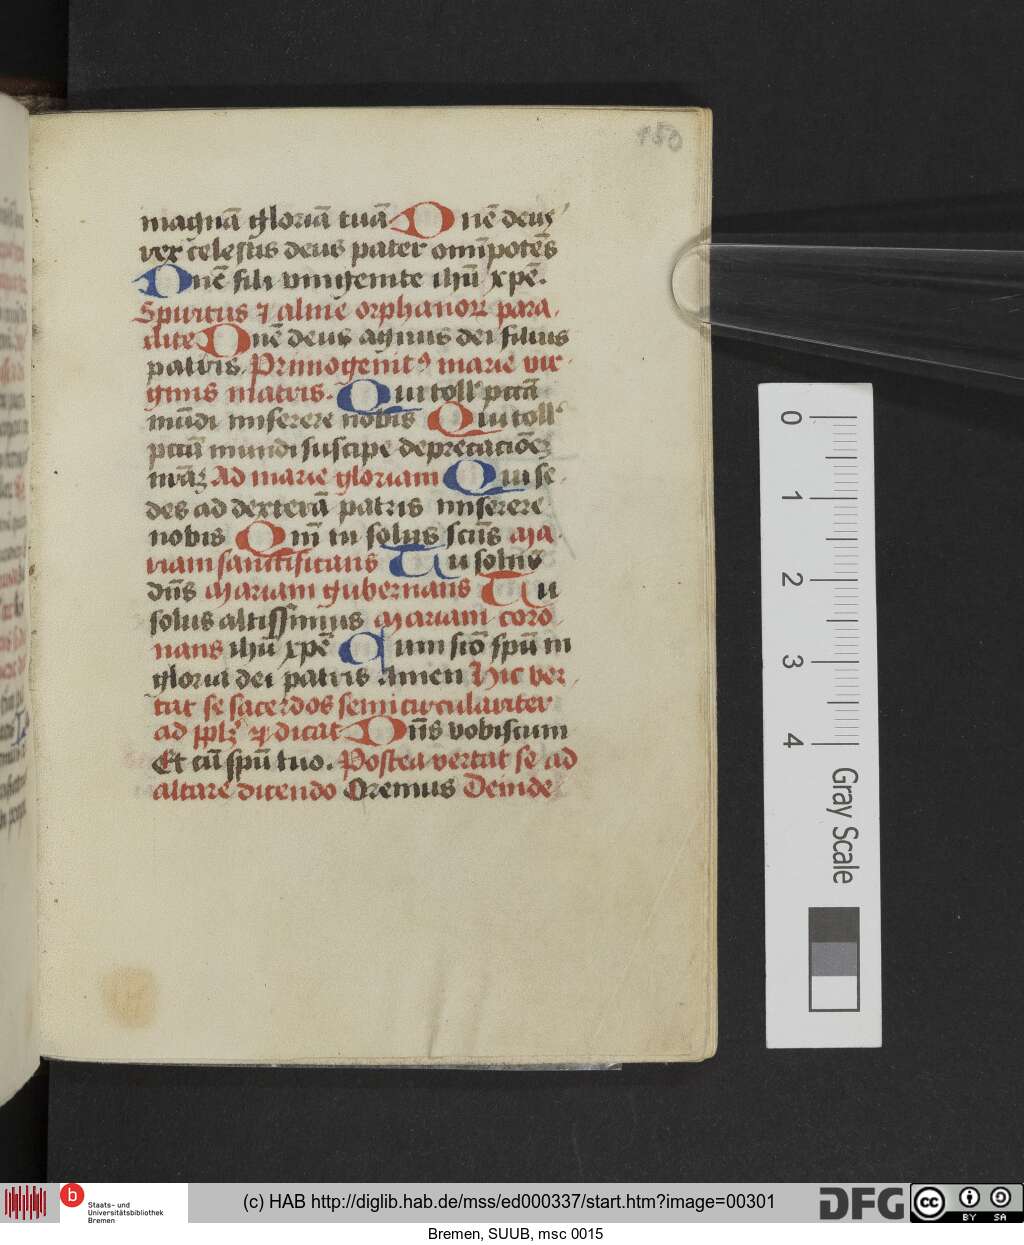 150
magnā gloriā tuā Dnē deus
rex celestis deus pater omīpotēs
Dnē fili vnigenite ihū xpē.
Spiritus ⁊ alme orphanoꝝ para
clite Dnē deus agnus dei filius
patris Primogenitꝰ marie vir
ginis matris. Qui toll' pctā
mūdi miserere nobis Qui toll'
pctā mundi suscipe deprecacōeꝫ
nrāꝫ Ad marie gloriam Qui se
des ad dexterā patris miserere
nobis Qm̄ tu solus scūs Ma
riam sanctificans Tu solus
dūs Mariam gubernans Tu
solus altissimus Mariam coro
nans ihū xpē Cum scō spū in
gloria dei patris Amen Hic ver
tat se sacerdos semicirculariter
ad pplꝫ ⁊ dicat Dūs vobiscum
Et cū spū tuo. Postea vertat se ad
altare dicendo Oremus Deinde
0
1
2
3
4
Gray Scale
b
Staats- und
Universitätsbibliothek
Bremen
(c) HAB http://diglib.hab.de/mss/ed000337/start.htm?image=00301
DFG
cc BY SA
Bremen, SUUB, msc 0015